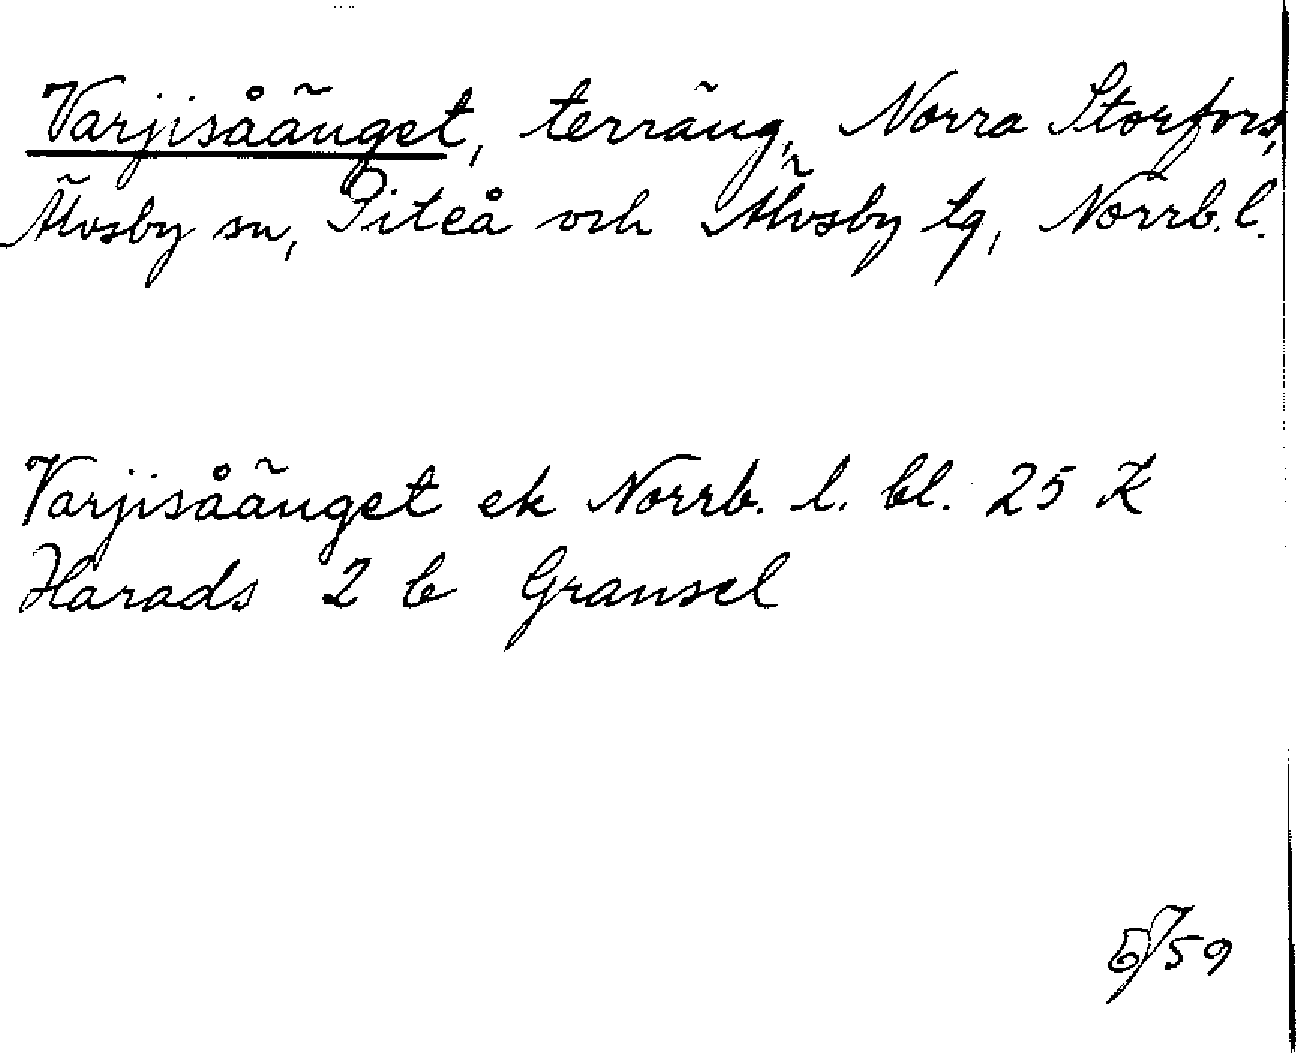 Varjisåänget, terräng, Norra Storfors,
Älvsby sn, Piteå och Älvsby tg, Norrb. l.
Varjisåänget ek Norrb. l. bl. 25 K
Harads 2 b Gransel